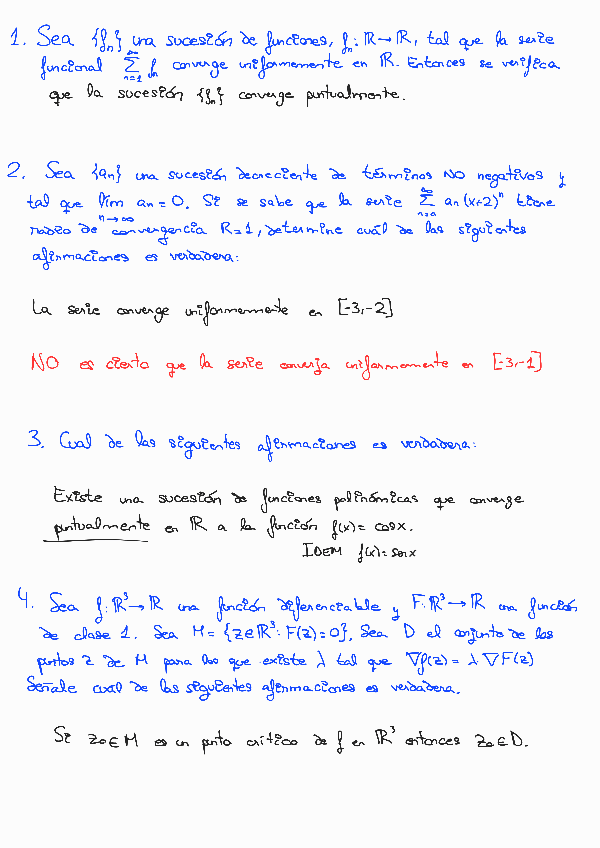 1. Sea {fn} una sucesión de funciones, fn: ℝ→ℝ, tal que la serie
funcional ∑_{n=1}^{∞} fn converge uniformemente en ℝ. Entonces se verifica
que la sucesión {fn} converge puntualmente.
2. Sea {an} una sucesión decreciente de términos NO negativos y
tal que lím_{n→∞} an = 0. Si se sabe que la serie ∑_{n=0}^{∞} an (x+2)^n tiene
radio de convergencia R=1, determine cuál de las siguientes
afirmaciones es verdadera:
La serie converge uniformemente en [-3,-2]
NO es cierto que la serie converja uniformemente en [-3,-1]
3. Cual de las siguientes afirmaciones es verdadera:
Existe una sucesión de funciones polinómicas que converge
puntualmente en ℝ a la función f(x) = cosx.
IDEM f(x)=senx
4. Sea f: ℝ³→ℝ una función diferenciable y F: ℝ³→ℝ una función
de clase 1. Sea M = {z∈ℝ³: F(z)=0}, Sea D el conjunto de los
puntos z de M para los que existe λ tal que ∇f(z) = λ∇F(z)
Señale cual de las siguientes afirmaciones es verdadera.
Si z₀∈M es un punto crítico de f en ℝ³ entonces z₀∈D.